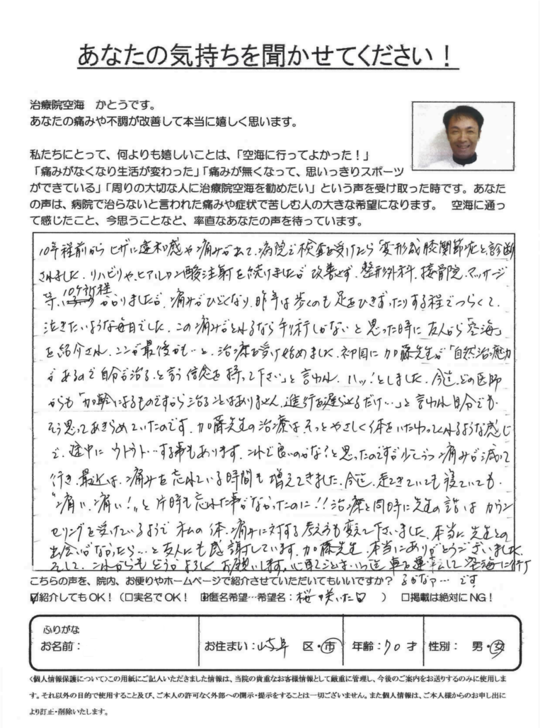 あなたの気持ちを聞かせてください！
治療院空海　かとうです。
あなたの痛みや不調が改善して本当に嬉しく思います。
私たちにとって、何よりも嬉しいことは、「空海に行ってよかった！」
「痛みがなくなり生活が変わった」「痛みが無くなって、思いっきりスポーツ
ができている」「周りの大切な人に治療院空海を勧めたい」という声を受け取った時です。あなた
の声は、病院で治らないと言われた痛みや症状で苦しむ人の大きな希望になります。　空海に通っ
て感じたこと、今思うことなど、率直なあなたの声を待っています。
10年程前からヒザに違和感や痛みが出て、病院で検査を受けたら「変形成膝関節症」と診断
されました。リハビリや、ヒアルロン酸注射を続けましたが改善せず、整形外科、接骨院、マッサージ
等、10ヶ所程かかりましたが、痛みがひどくなり、昨年は歩くのも足をひきずったりする程でつらくて、
泣きたいような毎日でした。この痛みがとれるなら手術しかないと思った時に友人から「空海」
を紹介され、ここが最後かも…と、治療を受け始めました。初回に加藤先生が「自然治癒力
があるので自分で治ると言う信念を持って下さい」と言われ、ハッ！としました。今迄、どの医師
からも「加齢によるものですから治ることはありません、進行を遅らせるだけ…」と言われ自分でも
そう思ってあきらめていたのです。加藤先生の治療はそっとやさしく体をいたわってくれるような感じ
で、途中にウトウト…する事もあります。これで良いのかな？と思ったのですが少しづつ痛みが減って
行き、最近は、痛みを忘れている時間も増えてきました。今迄、起きていても寝ていても、
“痛い、痛い！”と片時も忘れた事がなかったのに！！治療と同時に先生の話はカウン
セリングを受けているようで私の体、痛みに対する考えも変えて下さいました。本当に先生との
出会いがなかったら…と友人にも感謝しています。加藤先生、本当にありがとうございました。
そして、これからもどうぞよろしくお願いします。
こちらの声を、院内、お便りやホームページで紹介させていただいてもいいですか？
☑紹介してもOK！（□実名でOK！　☑匿名希望－希望名：桜咲いた　）　□掲載は絶対にNG！
ふりがな
お名前：　お住まい：岐阜　区・市　年齢：70才　性別：　男・女
〈個人情報保護について〉この用紙にご記入いただきました情報は、当院の貴重なお客様情報として厳重に管理し、今後のご案内をお送りするのみに使用しま
す。それ以外の目的で使用すること及び、ご本人の許可なく外部への開示・提示をすることは一切ございません。また個人情報は、ご本人様からのお申し出に
より訂正・削除いたします。